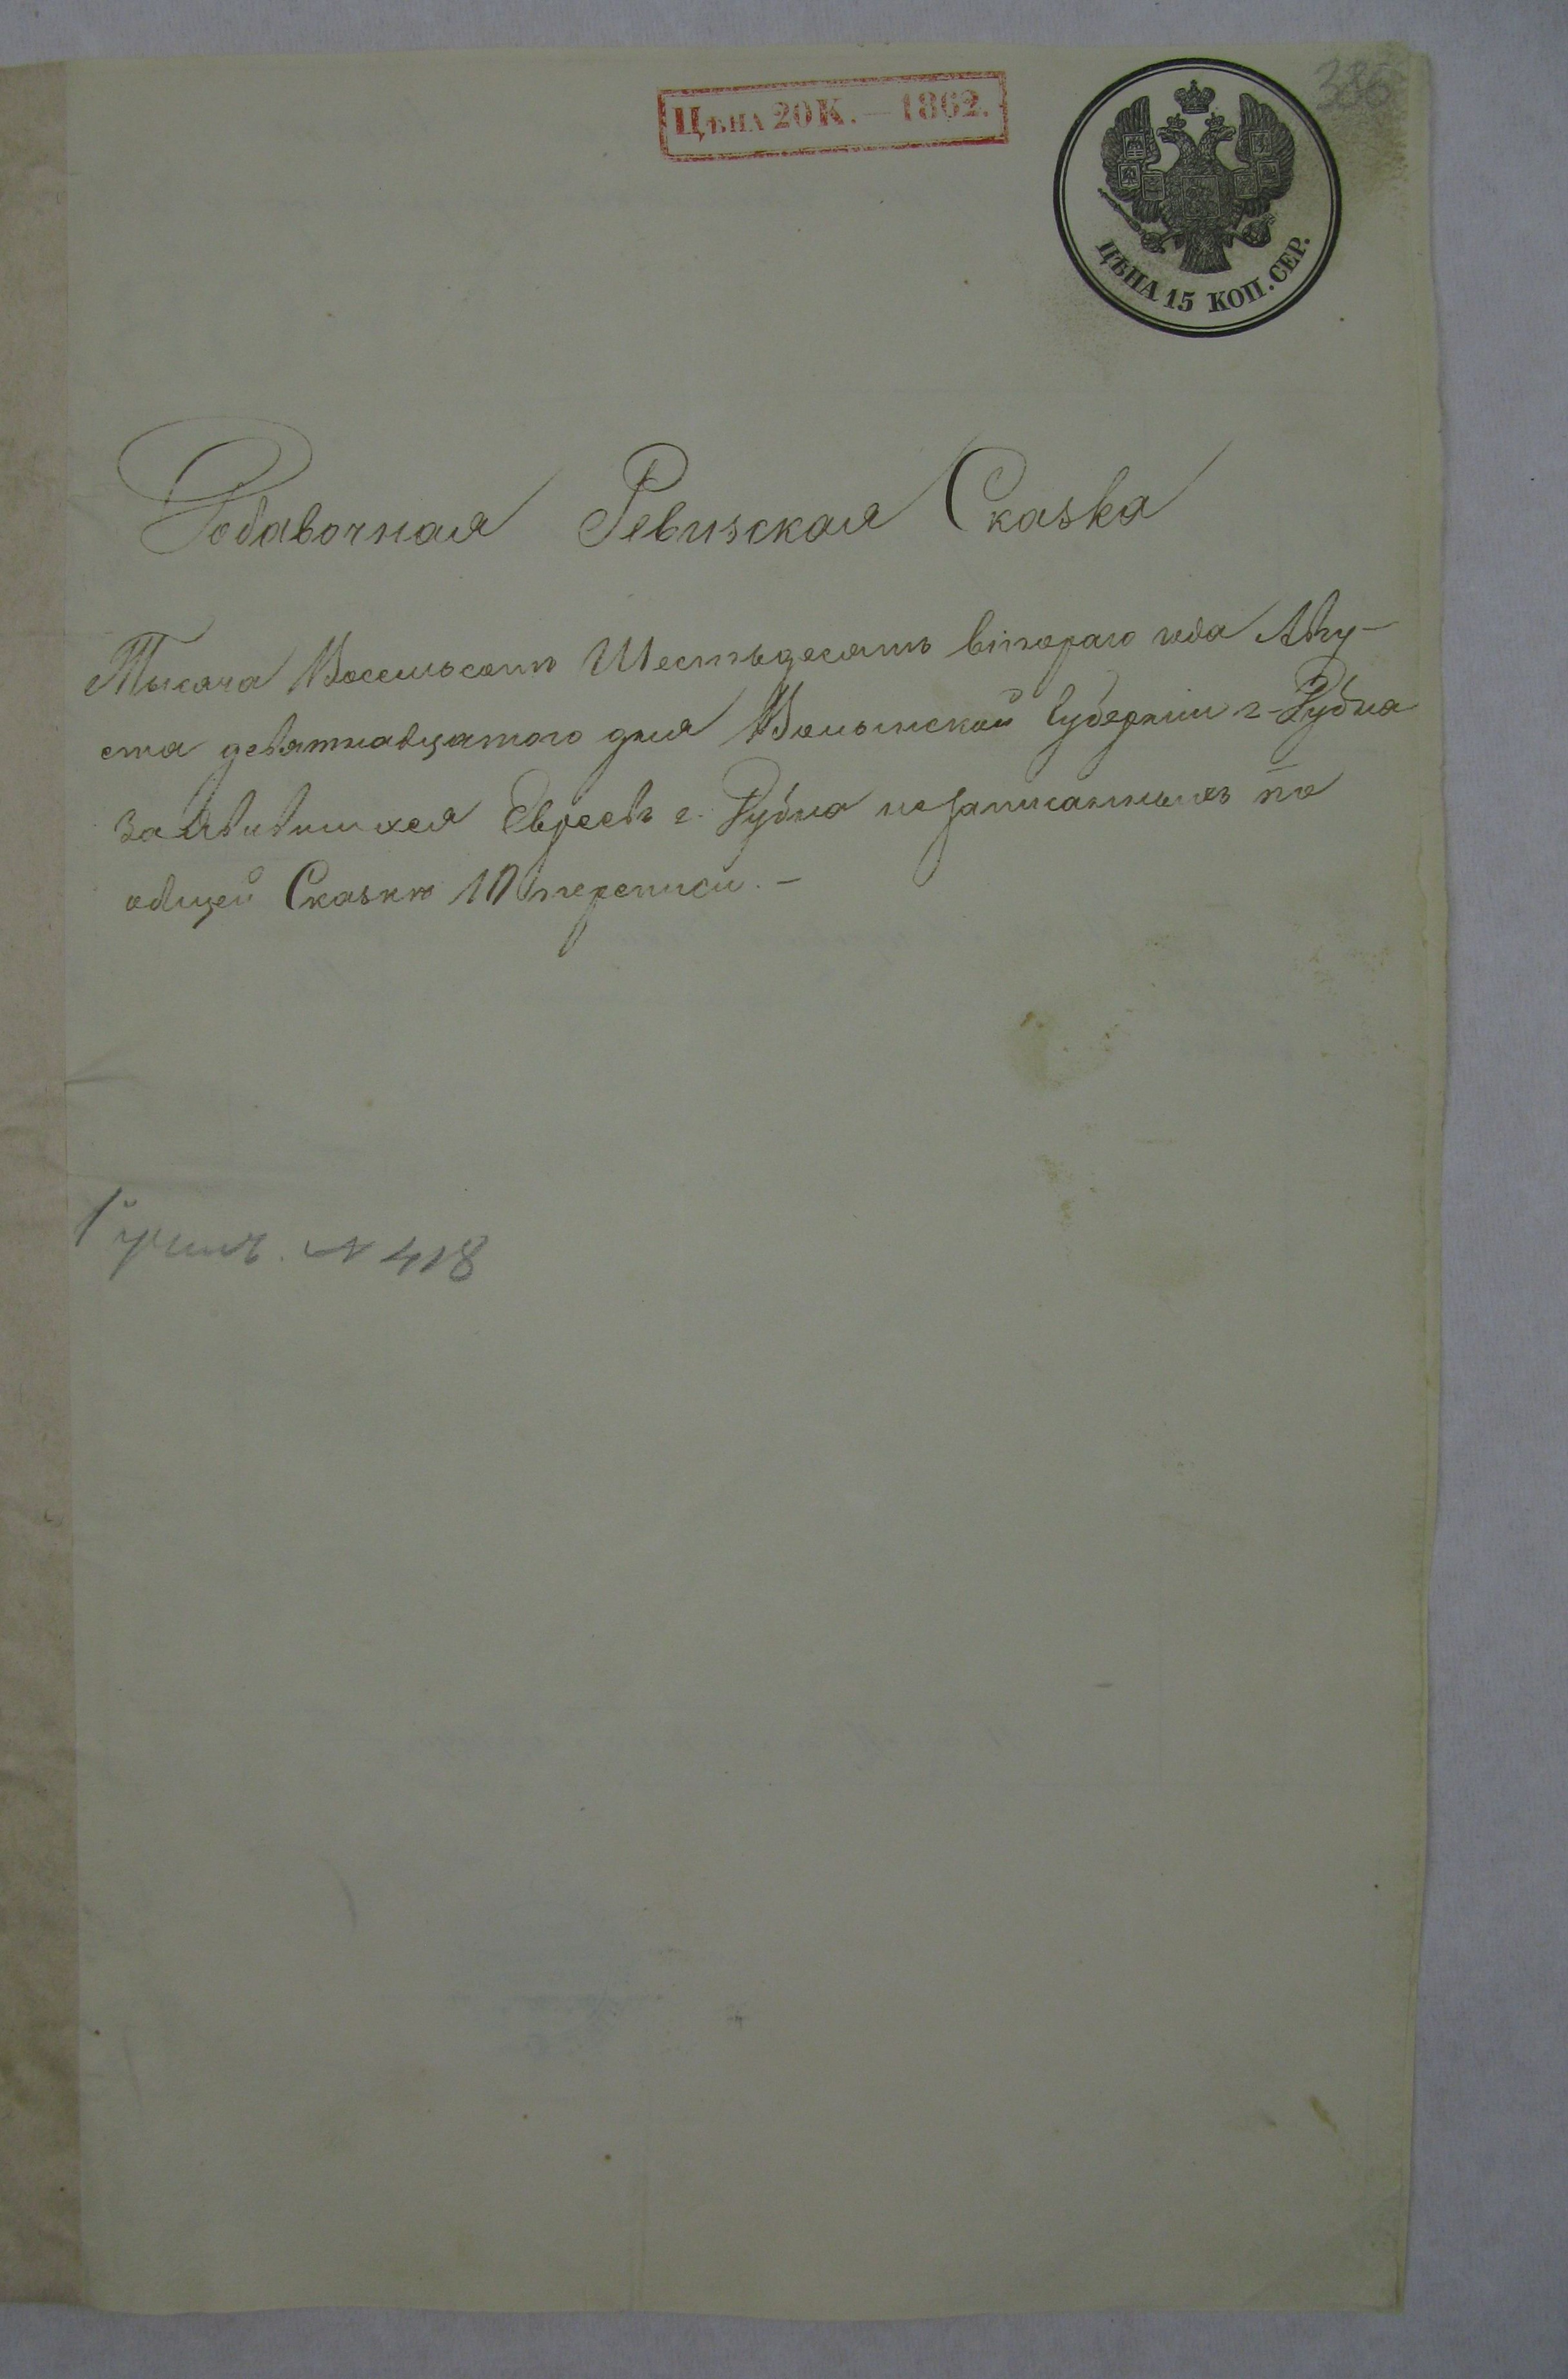 386
Цѣна 20 К. — 1862.
ЦѢНА 15 КОП. СЕР.
Добавочная Ревизская Сказка
Тысяча Восемьсотъ Шестьдесятъ втораго года Авгу-
ста девятнадцатого дня Волынской Губерніи г. Дубна
заявившихся Евреевъ г. Дубна незаписанныхъ по
общей Сказкѣ 10 переписи. —
N 418